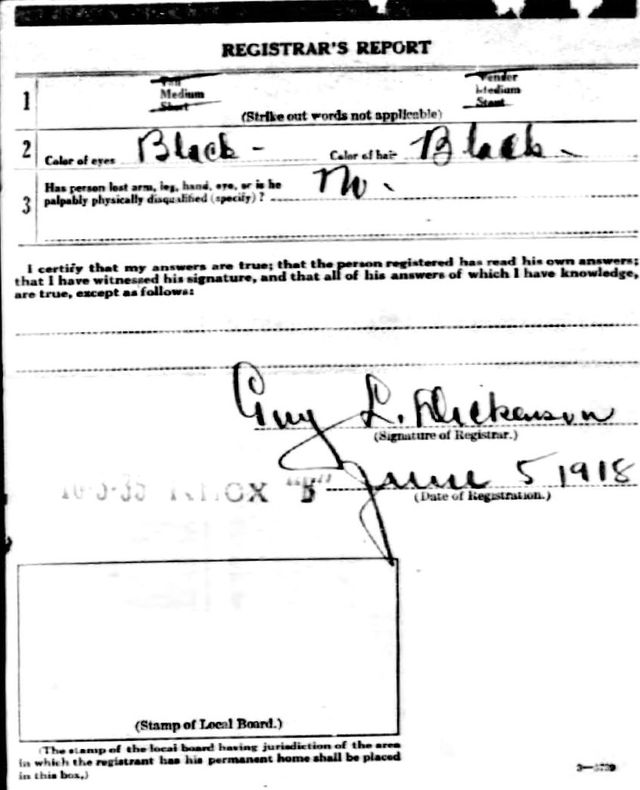 REGISTRAR'S REPORT
1 Tall Slender
Medium Medium
Short Stout
(Strike out words not applicable)
2 Color of eyes Black - Color of hair Black.
3 Has person lost arm, leg, hand, eye, or is he
palpably physically disqualified (specify)? No.
I certify that my answers are true; that the person registered has read his own answers;
that I have witnessed his signature, and that all of his answers of which I have knowledge,
are true, except as follows:
Guy L. Dickenson
(Signature of Registrar.)
KNOX "B" June 5 1918
(Date of Registration.)
(Stamp of Local Board.)
(The stamp of the local board having jurisdiction of the area
in which the registrant has his permanent home shall be placed
in this box.)